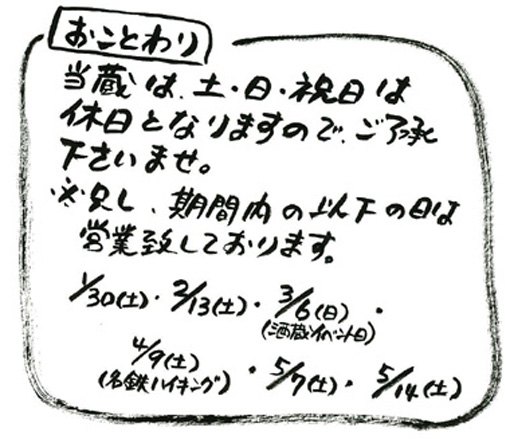 おことわり
当蔵は、土・日・祝日は
休日となりますので、ご了承
下さいませ。
※只し、期間内の以下の日は
営業致しております。
1/30(土)・2/13(土)・3/6(日)・
(酒蔵イベント日)
4/9(土)・5/7(土)・5/14(土)
(名鉄ハイキング)